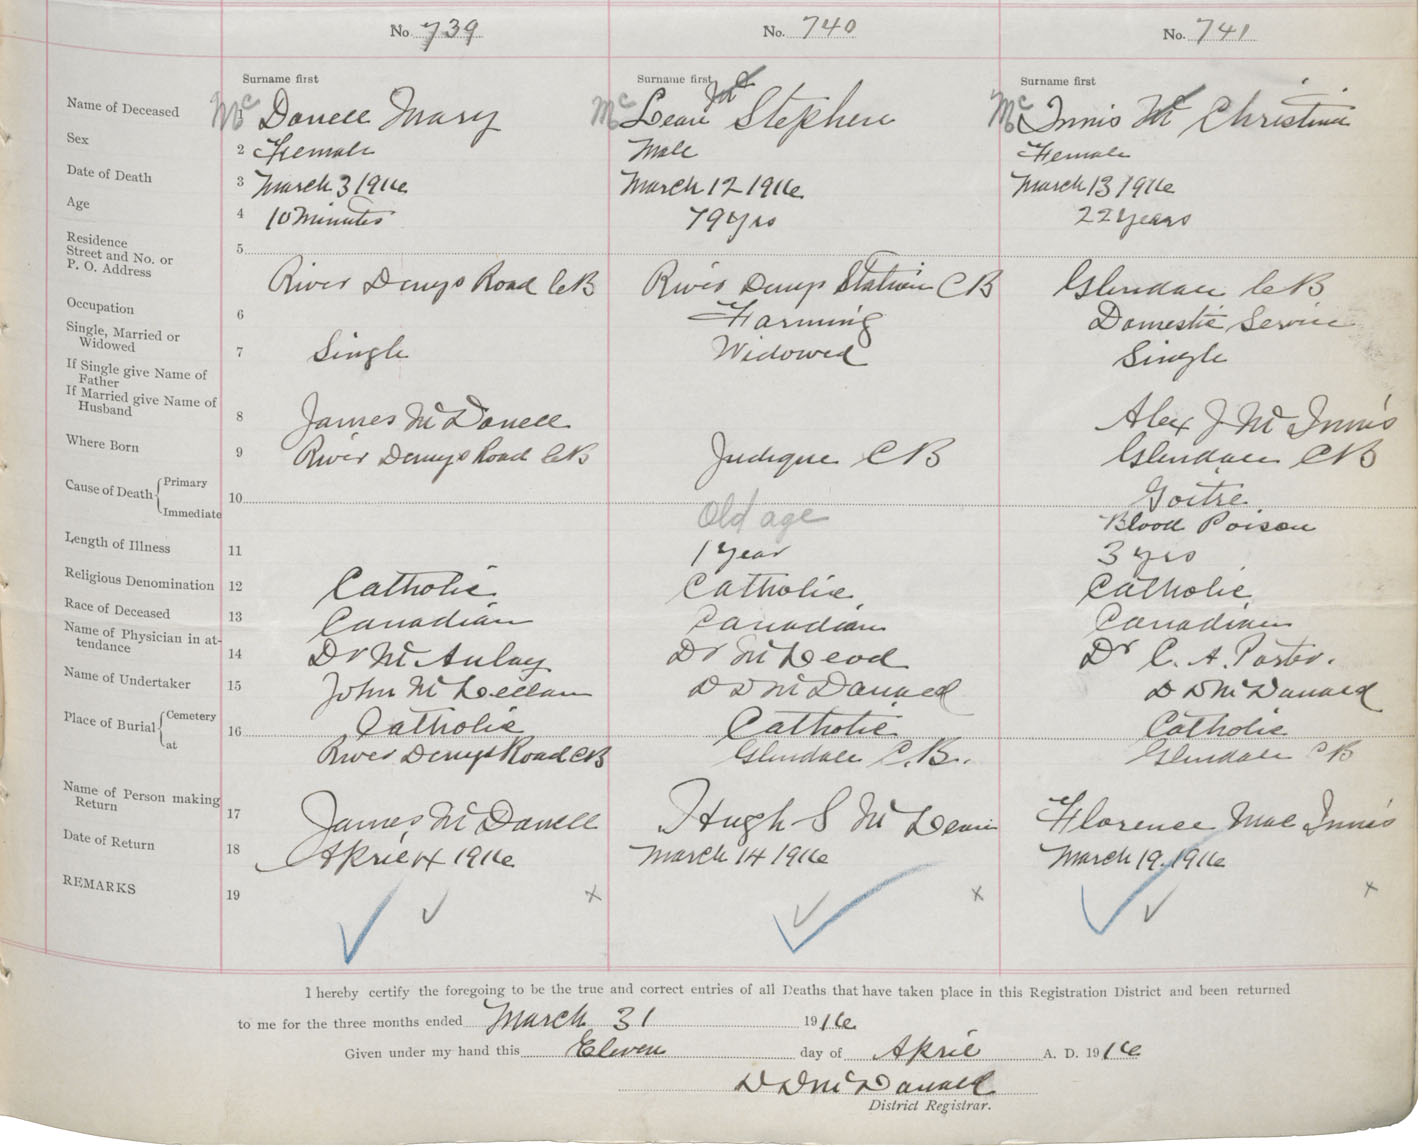 No. 739 No. 740 No. 741
Surname first Surname first Surname first
Name of Deceased 1 Mc Donell Mary Mc Lean Stephen Mc Innis Mc Christina
Sex 2 Female Male Female
Date of Death 3 March 3 1916 March 12 1916 March 13 1916
Age 4 10 Minutes 79 yrs 22 years
Residence
Street and No. or
P. O. Address
5 River Denys Road CB River Denys Station CB Glendale CB
Occupation 6 Farming Domestic Service
Single, Married or
Widowed
7 Single Widowed Single
If Single give Name of
Father
If Married give Name of
Husband
8 James McDonell Alex J McInnis
Where Born 9 River Denys Road CB Judique CB Glendale CB
Cause of Death Primary 10 Goitre
Immediate Old age Blood Poison
Length of Illness 11 1 year 3 yrs
Religious Denomination 12 Catholic Catholic Catholic
Race of Deceased 13 Canadian Canadian Canadian
Name of Physician in at-
tendance
14 Dr McAulay Dr McLeod Dr C. A. Foster.
Name of Undertaker 15 John McLellan D D McDonald D D McDonald
Place of Burial Cemetery 16 Catholic Catholic Catholic
at River Denys Road CB Glendale C.B. Glendale CB
Name of Person making
Return
17 James McDonell Hugh S McLean Florence MacInnis
Date of Return 18 April 4 1916 March 14 1916 March 19. 1916
REMARKS 19 x x x
I hereby certify the foregoing to be the true and correct entries of all Deaths that have taken place in this Registration District and been returned
to me for the three months ended March 31 1916
Given under my hand this Eleven day of April A. D. 1916
D D McDonald
District Registrar.